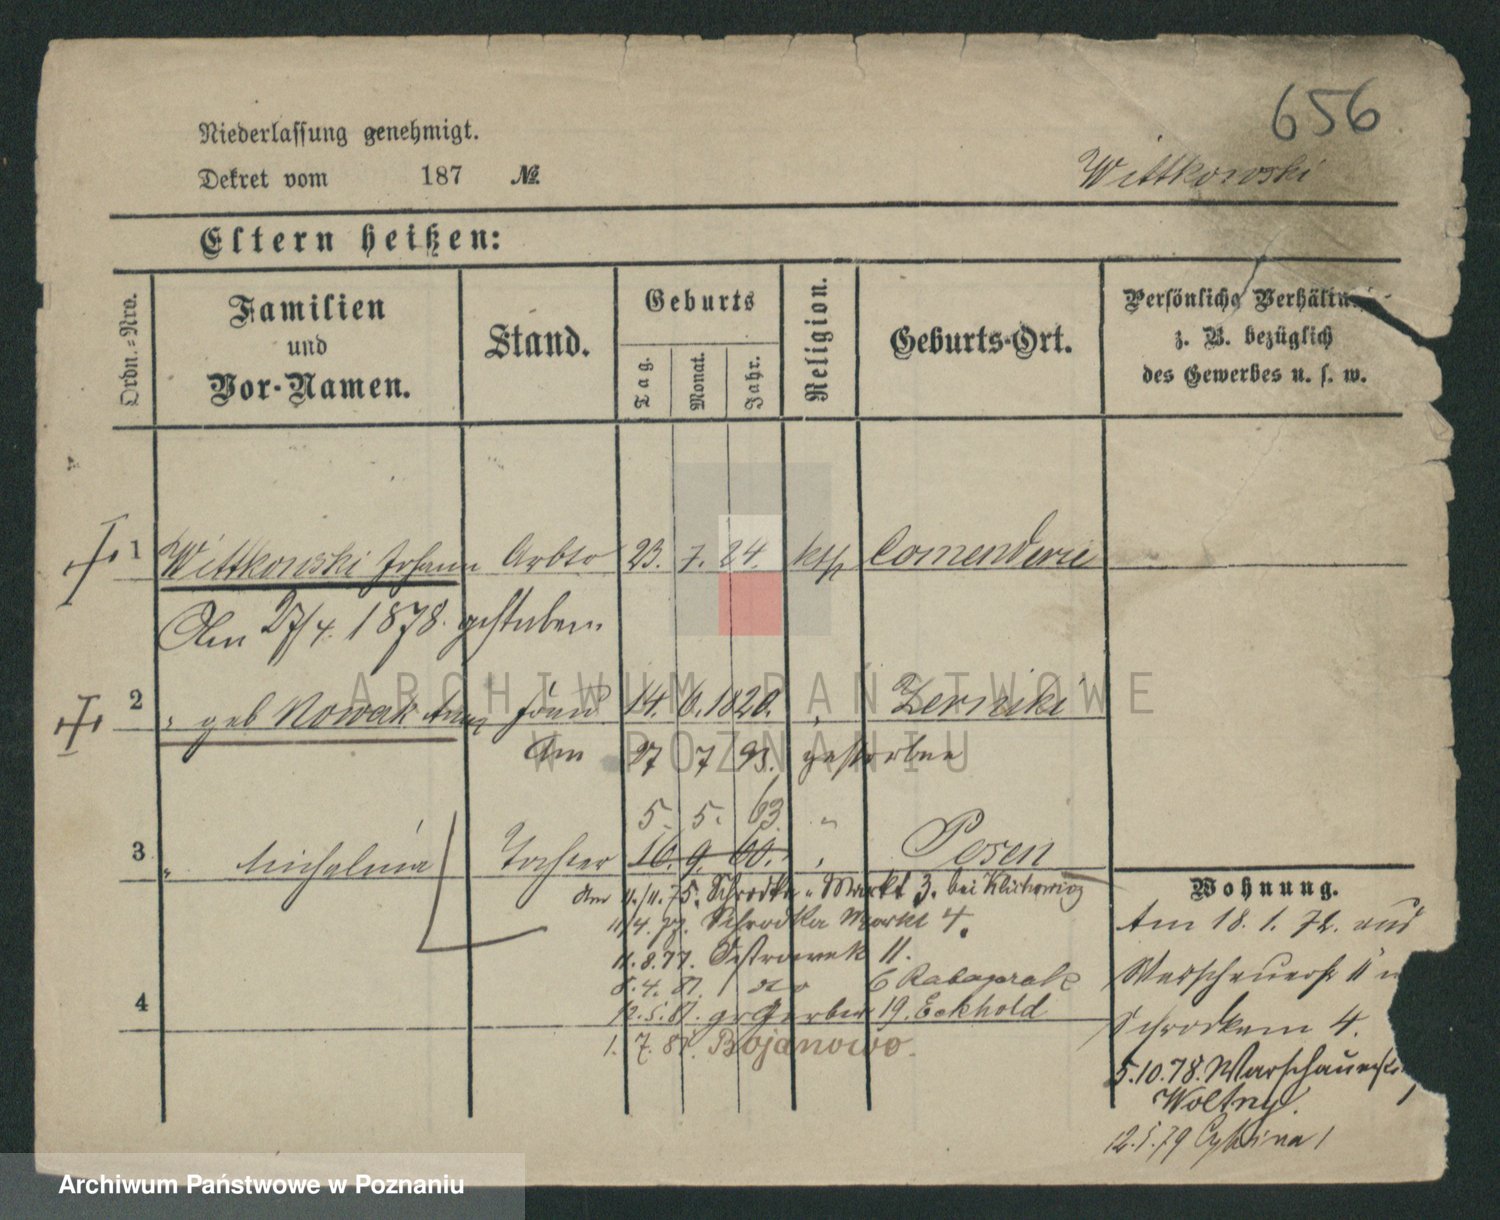 656
Niederlassung genehmigt.
Dekret vom 187 №
Wittkowski
Eltern heißen:
Ordn.=Nro.
Familien
und
Vor-Namen.
Stand.
Geburts
Tag.
Monat.
Jahr.
Religion.
Geburts-Ort.
Persönliche
z. B. bezüglich
des Gewerbes u. s. w.
1 Wittkowski Johann Arbtr 23. 7. 24. kth Comenderie
Am 27/4. 1878. gestorben.
2 " geb Nowak Anna 14. 6. 1820. " Zerniki
Am 27 7 93. gestorben
5. 5. 63. "
3 " Michalina Tochter 16. 9. 60. " Posen
Am 11./11. 75. Schrodka Markt 3. bei
11/4. 77. Schrodka Markt 4.
11. 8. 77. Ostrowek 11.
8. 4. 81. do 6
12. 5. 81. gr Gerber 19. Eckhold
4
1. 7. 81. Bojanowo.
Wohnung.
Am 18. 1. 72. aus
Schrodkam 4.
5.10.78. Warschauerstr
Woltny.
12.5.79 1
ARCHIWUM PAŃSTWOWE
W POZNANIU
Archiwum Państwowe w Poznaniu